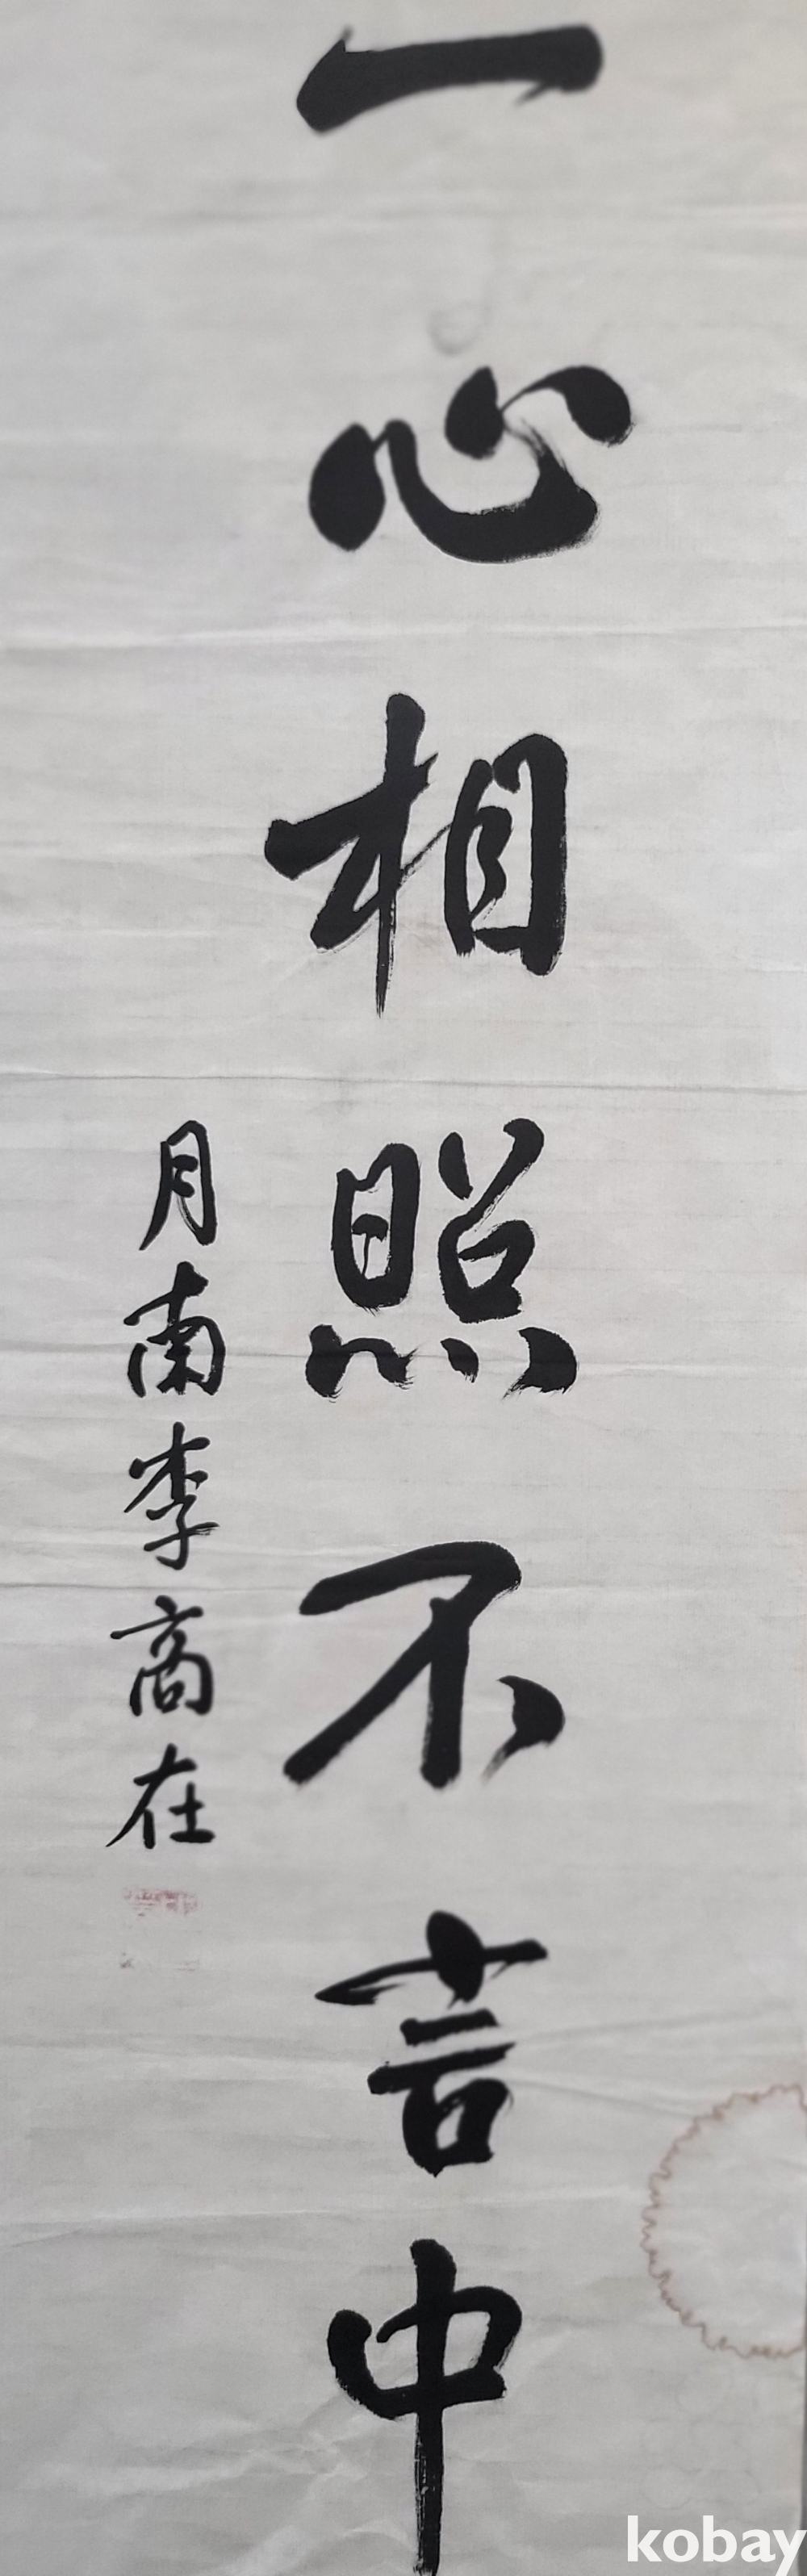 一心相照不言中
月南李高在
kobay